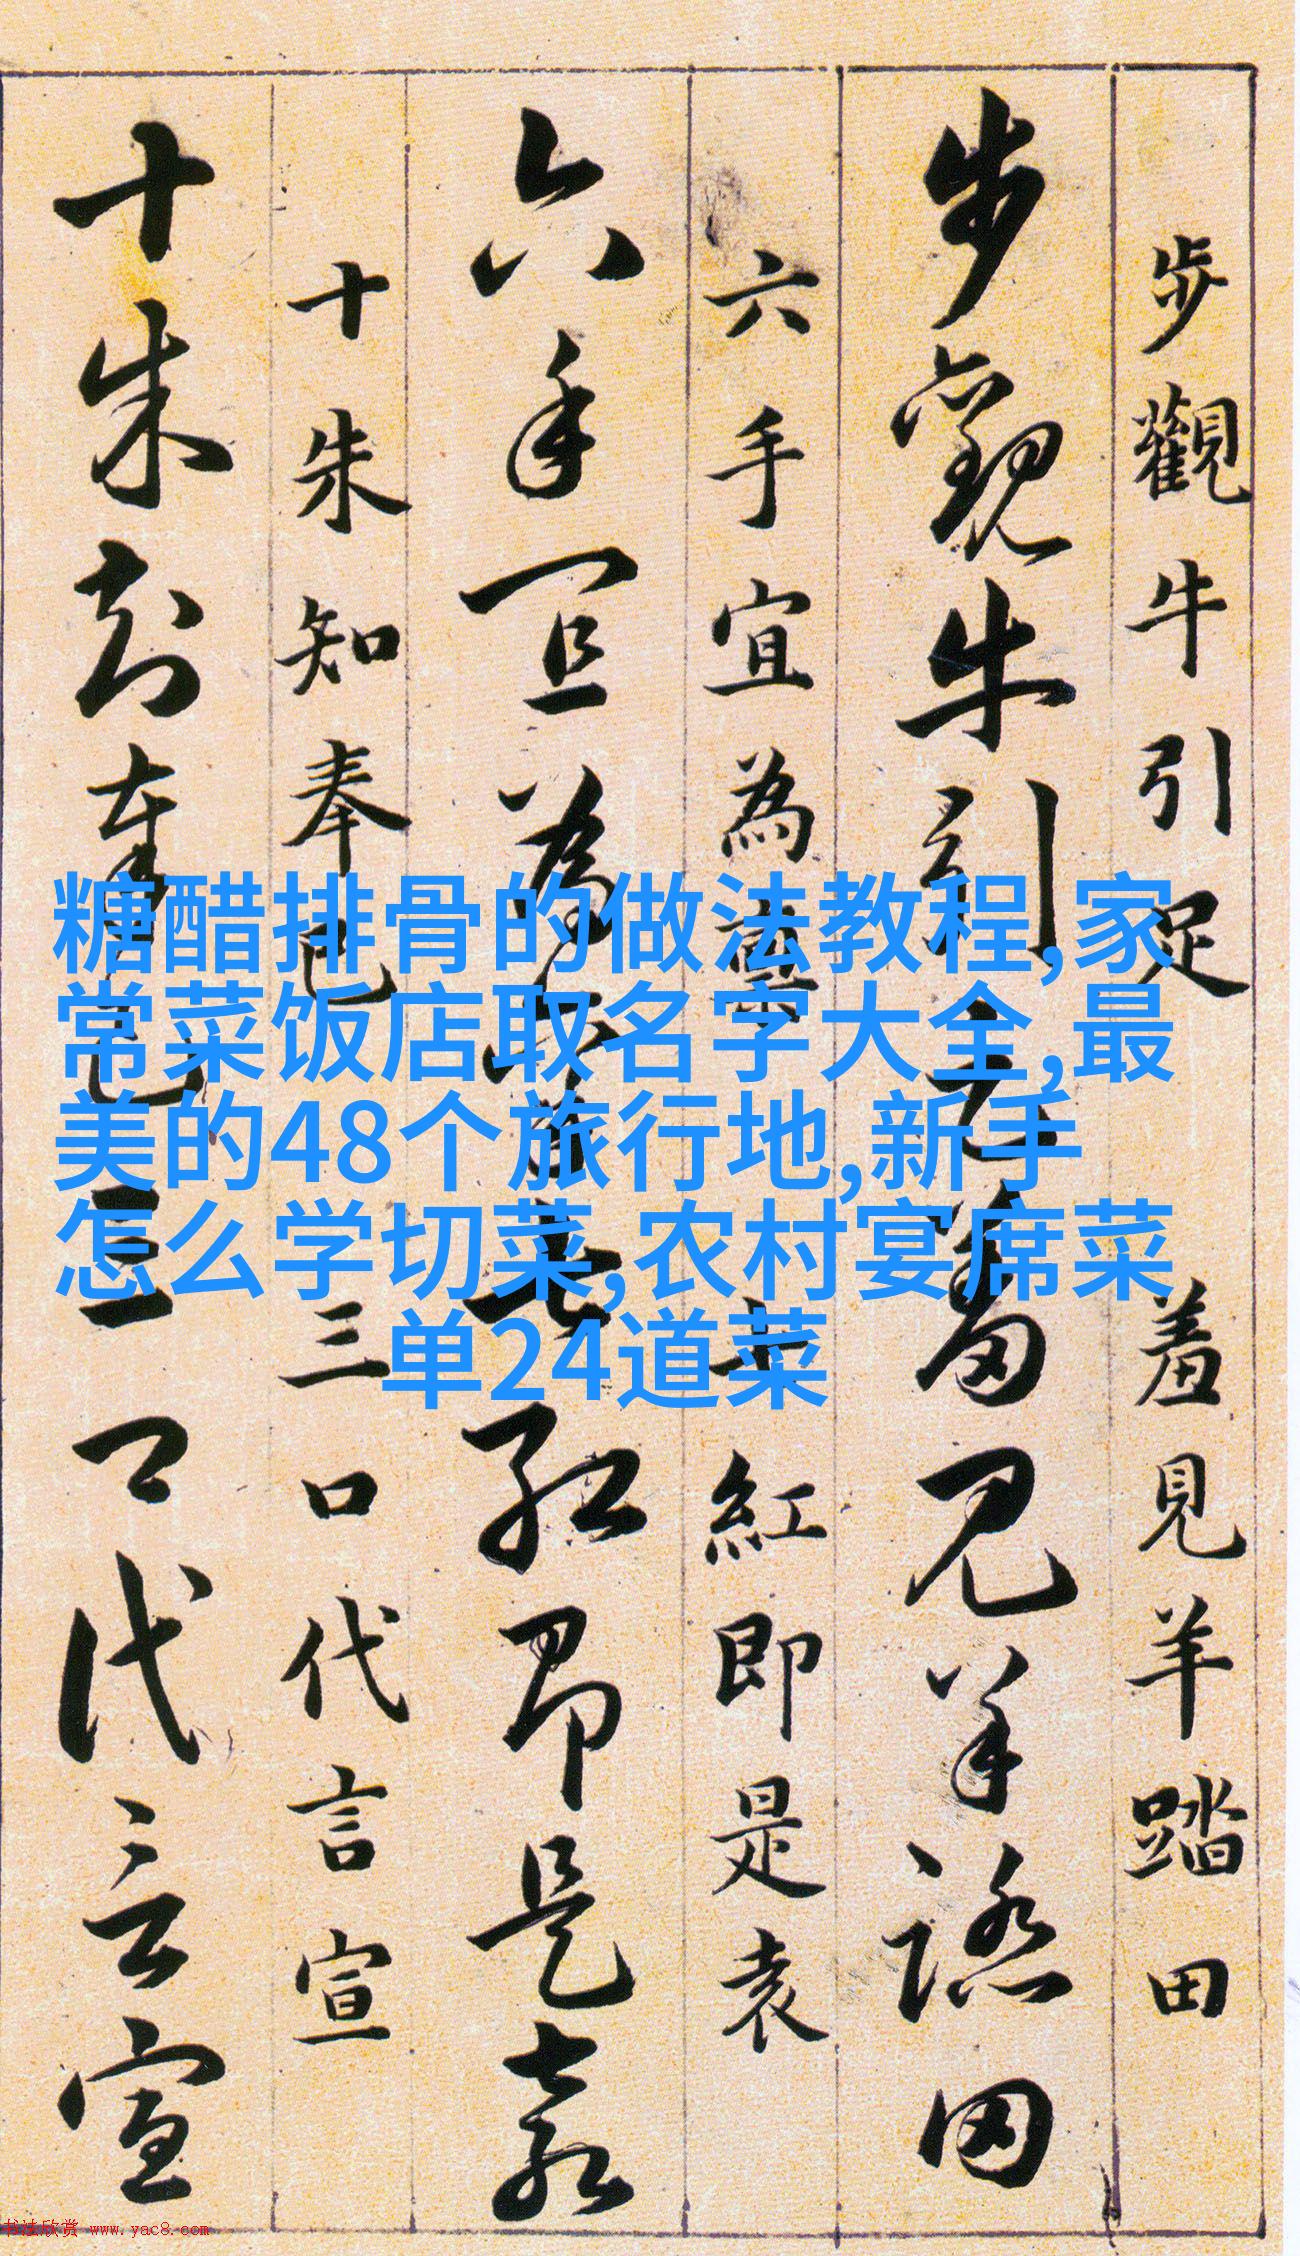 步觀牛引足 羞見羊踏田
步觀牛引足羞見羊踏田
六手宜為稟 七紅即是袁
六手宜為稟七紅即是袁
十朱知奉已 三口代言宣
十朱知奉已三口代言宣
糖醋排骨的做法教程,家
常菜饭店取名字大全,最
美的48个旅行地,新手
怎么学切菜,农村宴席菜
单24道菜
书法欣赏 www.yac8.com